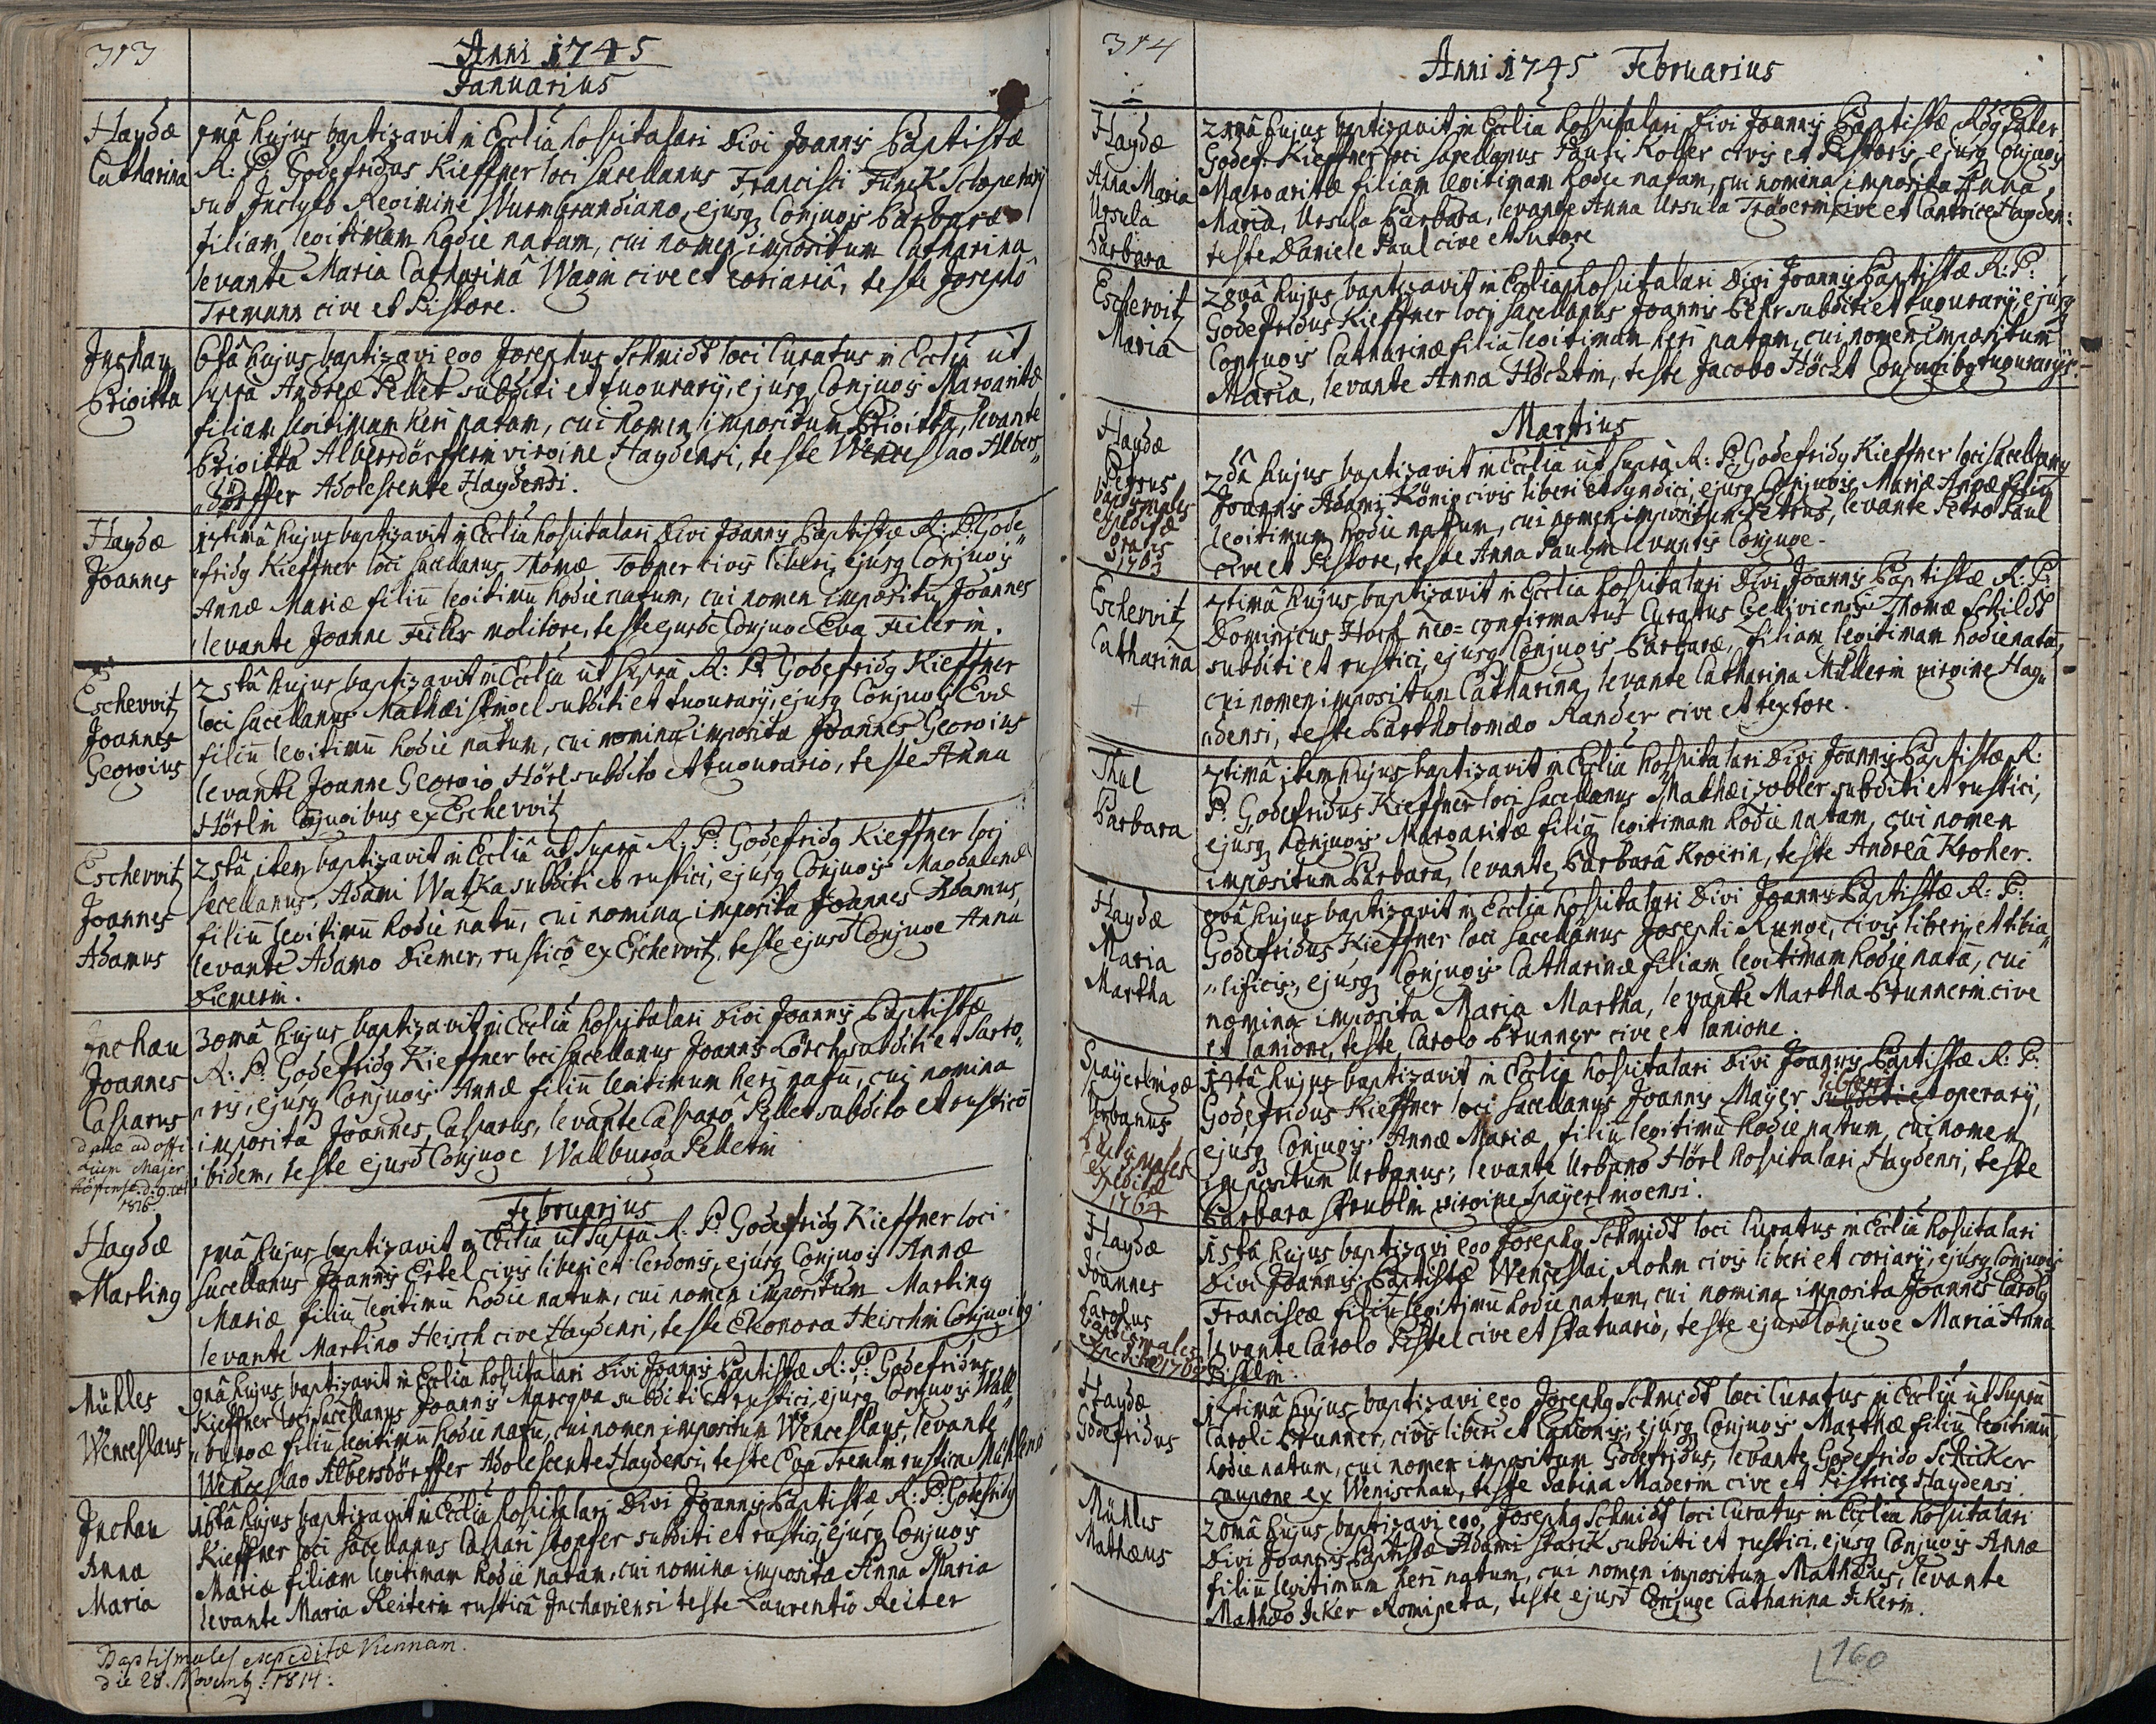 313
Anni 1745
Januarius
Haydæ
Catharina
1mâ hujus baptizavit in Ecclia hospitalari Divi Joannis Baptistæ
R: P: Godefridus Kieffner loci sacellanus Francisci Funck Sclopetarij
sub Inclyto Regimine Wurmbrandiano, ejusq Conjugis Barbaræ
filiam legitimam hodie natam, cui nomen impositum Catharina
levante Maria Catharinâ Wagin cive et coriariâ, teste Josepho
Tremann cive et Pistore.
Inchau
Brigitta
6tâ hujus baptizavi ego Josephus Schmidt loci Curatus in Ecclia ut
supra Andreæ Pellet subditi et tugurarij, ejusq Conjugis Margaritæ
filiam legitimam heri natam, cui nomen impositum Brigitta, levante
Brigitta Albersdörfferin virgine Haydensi, teste Wenceslao Albers„
„dörffer Adolescente Haydensi.
Haydæ
Joannes
17timâ hujus baptizavit in Ecclia hospitalari Divi Joannis Baptistæ R: P: Gode„
„fridg Kieffner loci sacellanus Thomæ Tobner civis liberi, ejusq Conjugis
Annæ Mariæ filiū legitimū hodie natum, cui nomen impositū Joannes
levante Joanne Feiler molitore, teste ejusd Conjuge Eva Feilerin.
Eschowitz
Joannes
Georgius
21stâ hujus baptizavit in Ecclia ut supra R: P: Godefridg Kieffner
loci sacellanus Mathæi Stingel subditi et tugurarij, ejusq Conjugis Evæ
filiū legitimū hodie natum, cui nomina imposita Joannes Georgius
levante Joanne Georgio Hörl subdito et tugurario, teste Anna
Hörlin Conjugibus ex Eschowitz
Eschowitz
Joannes
Adamus
21stâ item baptizavit in Ecclia ut supra R: P: Godefridg Kieffner loci
sacellanus, Adami Watzka subditi et rustici, ejusq Conjugis Magdalenæ
filiū legitimū hodie natū, cui nomina imposita Joannes Adamus,
levante Adamo Diemer, rustico ex Eschowitz, teste ejusd Conjuge Anna
Diemerin.
Inchau
Joannes
Casparus
datæ ad offi
cium Majer
höfense d: 9.
1816
30mâ hujus baptizavit in Ecclia hospitalari Divi Joannis Baptistæ
R: P: Godefridg Kieffner loci sacellanus Joannis Lörch subditi et Sarto„
„ris, ejusq Conjugis Annæ filiū legitimum heri natū, cui nomina
imposita Joannes Casparus, levante Casparo Pellet subdito et rustico
ibidem, teste ejusd Conjuge Wallburga Pelletin
Februarius
Haydæ
Marting
1mâ hujus baptizavit in Ecclia ut supra R: P: Godefridg Kieffner loci
sacellanus Joannis Ertel civis liberi et Cerdonis, ejusq Conjugis Annæ
Mariæ filiū legitimū hodie natum, cui nomen impositum Marting
levante Martino Heisch cive Haydensi, teste Eleonora Heischin Conjugibg
Mühles
Wenceslaus
9nâ hujus baptizavit in Ecclia hospitalari Divi Joannis Baptistæ R: P: Godefridus
Kieffner loci sacellanus Joannis Marcqva subditi et rustici, ejusq Conjugis Wall„
„burgæ filiū legitimū hodie natū, cui nomen impositum Wenceslaus, levante
Wenceslao Albersdörffer Adolescente Haydensi, teste Eva Tremlin rustica Mühlensi
Inchau
Anna
Maria
16tâ hujus baptizavit in Ecclia hospitalari Divi Joannis Baptistæ, R: P: Godefridg
Kieffner loci sacellanus Caspari Stopfer subditi et rustici, ejusq Conjugis
Mariæ filiam legitimam hodie natam, cui nomina imposita Anna Maria
levante Maria Reiterin rusticâ Inchaviensi teste Laurentio Reiter
Baptismales expeditæ Viennam.
die 28. Novemb: 1814:
314
Anni 1745 Februarius
Haydæ
Anna Maria
Ursula
Barbara
22nâ hujus baptizavit in Ecclia hospitalari Divi Joannis Baptistæ Rdg Pater
Godef: Kieffner loci sacellanus Pauli Koller civis et Pistoris, ejusq Conjugis
Margaritæ filiam legitimam hodie natam, cui nomina imposita Anna
Maria, Ursula Barbara, levante Anna Ursula Tragerin cive et Cantrice Hayden:
teste Daniele Paul cive et Sutore
Eschowitz
Maria
28vâ hujus baptizavit in Ecclia hospitalari Divi Joannis Baptistæ R: P:
Godefridus Kieffner loci sacellanus Joannis Behr subditi et tugurarij, ejusq
Conjugis Catharinæ filiā legitimam heri natam, cui nomen impositum
Maria, levante Anna Höchtin, teste Jacobo Höcht Conjugibg tugurarijs.
Martius
Haydæ
Petrus
baptismales
expeditæ
gratis
1763
2dâ hujus baptizavit in Ecclia ut supra R: P: Godefridg Kieffner loci sacellang
Joannis Adami König civis liberi et Syndici, ejusq Conjugis Mariæ Annæ filiū
legitimum hodie natum, cui nomen impositum Petrus, levante Petro Paul
cive et Pistore, teste Anna Paulin levantis Conjuge.
Eschowitz
Catharina
+
7timâ hujus baptizavit in Ecclia hospitalari Divi Joannis Baptistæ R: P:
Dominicus Hoch neo=confirmatus Curatus Thomæ Schildt
subditi et rustici, ejusq Conjugis Barbaræ, filiam legitimam hodie natā,
cui nomen impositum Catharina, levante Catharina Müllerin virgine Hay„
„densi, teste Bartholomæo Rander cive et textore.
Thul
Barbara
7timâ item hujus baptizavit in Ecclia hospitalari Divi Joannis Baptistæ R:
P: Godefridus Kieffner loci sacellanus Mathæi Zobler subditi et rustici,
ejusq Conjugis Margaritæ filiā legitimam hodie natam, cui nomen
impositum Barbara, levante Barbarâ Kroërin, teste Andreâ Kroher.
Haydæ
Maria
Martha
8vâ hujus baptizavit in Ecclia hospitalari Divi Joannis Baptistæ R: P:
Godefridus Kieffner loci sacellanus Josephi Runge, civis liberi et tibia„
„lificis, ejusq Conjugis Catharinæ filiam legitimam hodie natā, cui
nomina imposita Maria Martha, levante Martha Brunnerin cive
et lanione, teste Carolo Brunner cive et lanione.
Spayerlingæ
Urbanus
Baptismales
expeditæ
1764
14tâ hujus baptizavit in Ecclia hospitalari Divi Joannis Baptistæ R: P:
Godefridus Kieffner loci sacellanus Joannis Mayer subditi et operarij,
liberi
ejusq Conjugis Annæ Mariæ, filiū legitimū hodie natum, cui nomen
impositum Urbanus; levante Urbano Hörl hospitalari Haydensi, teste
Barbara Strublin virgine Spayerlingensi.
Haydæ
Joannes
Carolus
baptismales
expeditæ
15tâ hujus baptizavi ego Josephg Schmidt loci Curatus in Ecclia hospitalari
Divi Joannis Baptistæ Wenceslai Rohm civis liberi et coriarij, ejusq Conjugis
Franciscæ filiū legitimū hodie natum, cui nomina imposita Joannes Carolg
levante Carolo Pistel cive et statuario, teste ejusd Conjuge Mariâ Anna
Pistlin.
Haydæ
Godefridus
17timâ hujus baptizavi ego Josephg Schmidt loci Curatus in Ecclia ut supra
Caroli Brunner, civis liberi et Lanionis, ejusq Conjugis Marthæ filiū legitimū
hodie natum, cui nomen impositum Godefridus, levante Godefrido Schicker
caupone ex Wenischau, teste Sabina Maderin cive et Pistrice Haydensi.
Mühles
Mathæus
20mâ hujus baptizavi ego Josephg Schmidt loci Curatus in Ecclia hospitalari
Divi Joannis Baptistæ Adami Starck subditi et rustici, ejusq Conjugis Annæ
filiū legitimum heri natum, cui nomen impositum Mathæus, levante
Mathæo Icker Romipeta, teste ejusd Conjuge Catharina Ickerin.
160